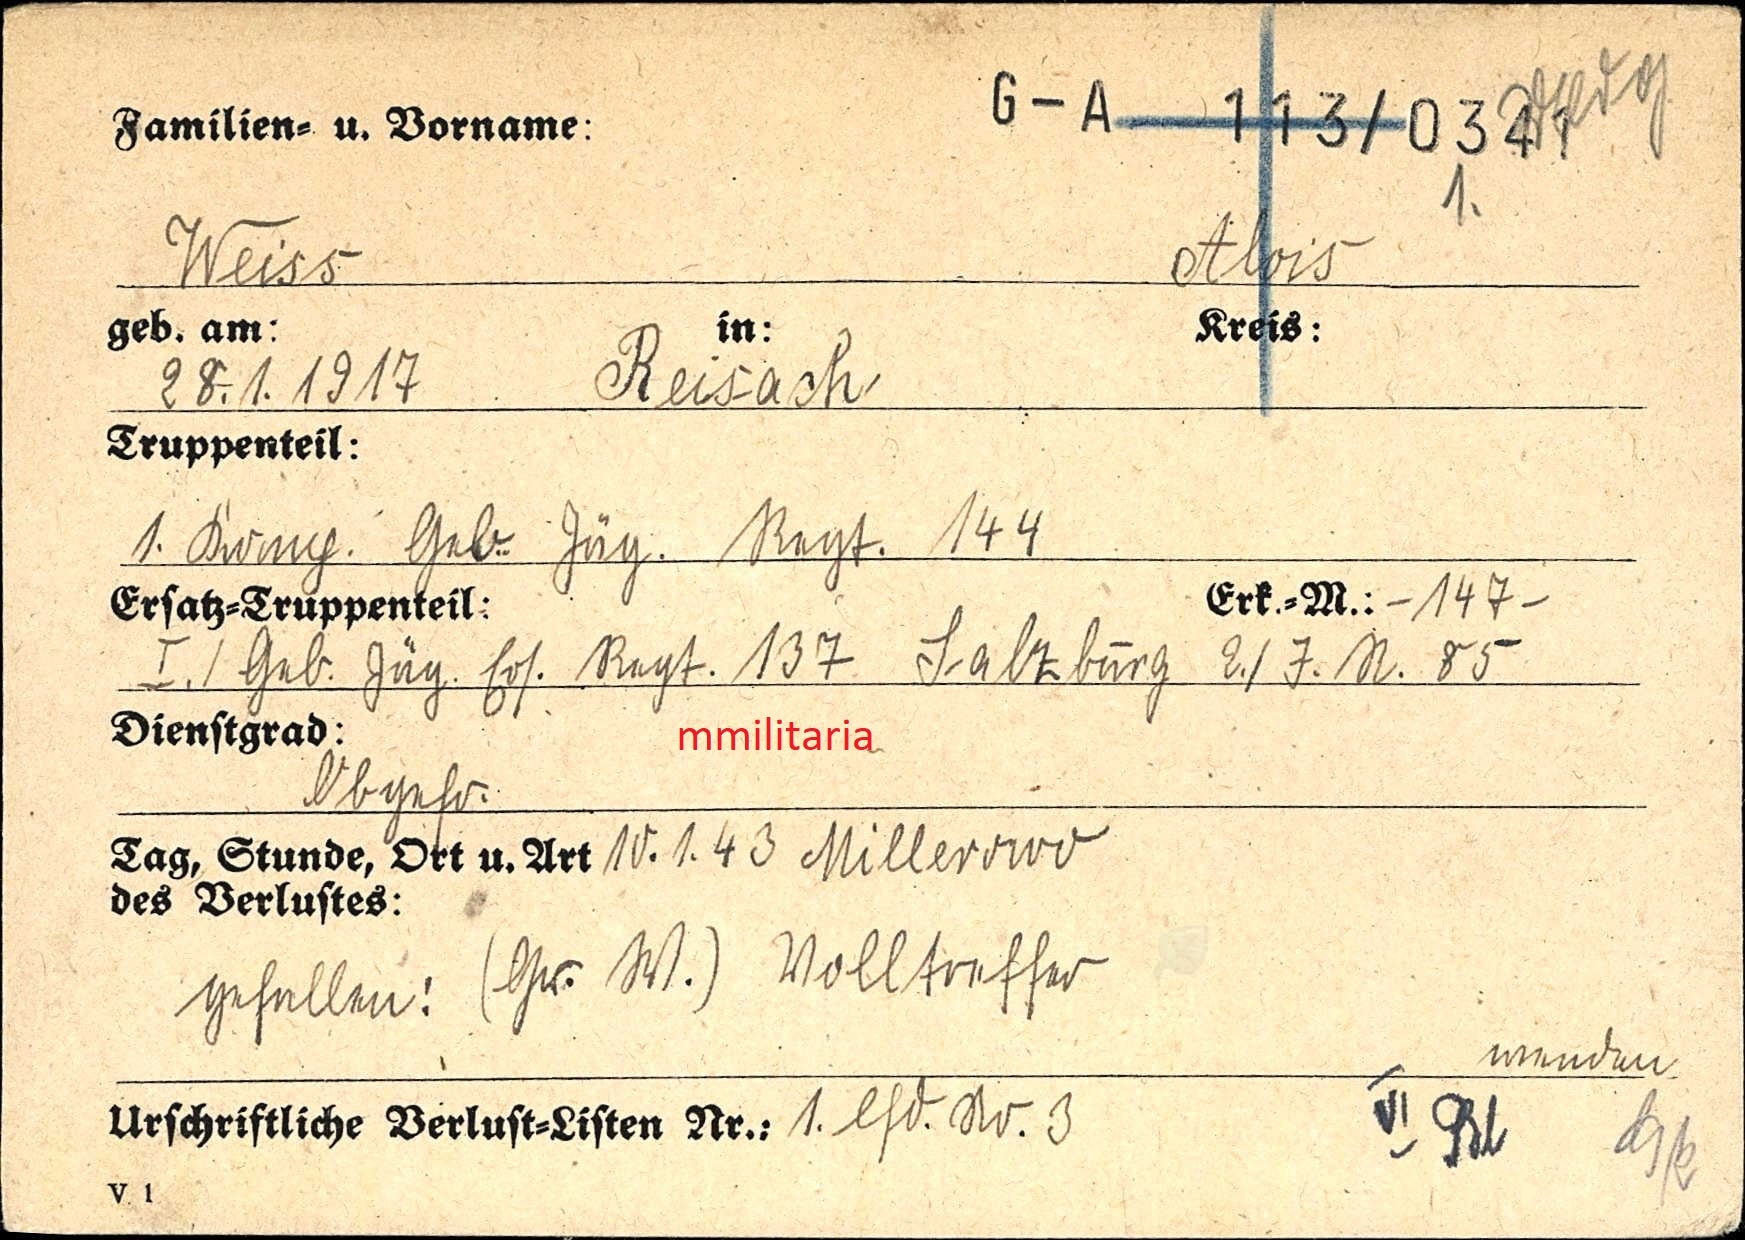 G-A 113/0341
Familien- u. Vorname:
1.
Weiss Alois
geb. am: in: Kreis:
28.1.1917 Reisach
Truppenteil:
1. Komp. Geb. Jäg. Regt. 144
Ersatz-Truppenteil: Erk.-M.: -147-
I./ Geb. Jäg. Ers. Regt. 137 Salzburg 2./ J. R. 85
Dienstgrad:
mmilitaria
Obgefr.
Tag, Stunde, Ort u. Art 10.1.43 Millerowo
des Verlustes:
gefallen: (Gr. W.) Volltreffer
wenden
Urschriftliche Verlust-Listen Nr.: 1. lfd. Nr. 3
VI
V. 1